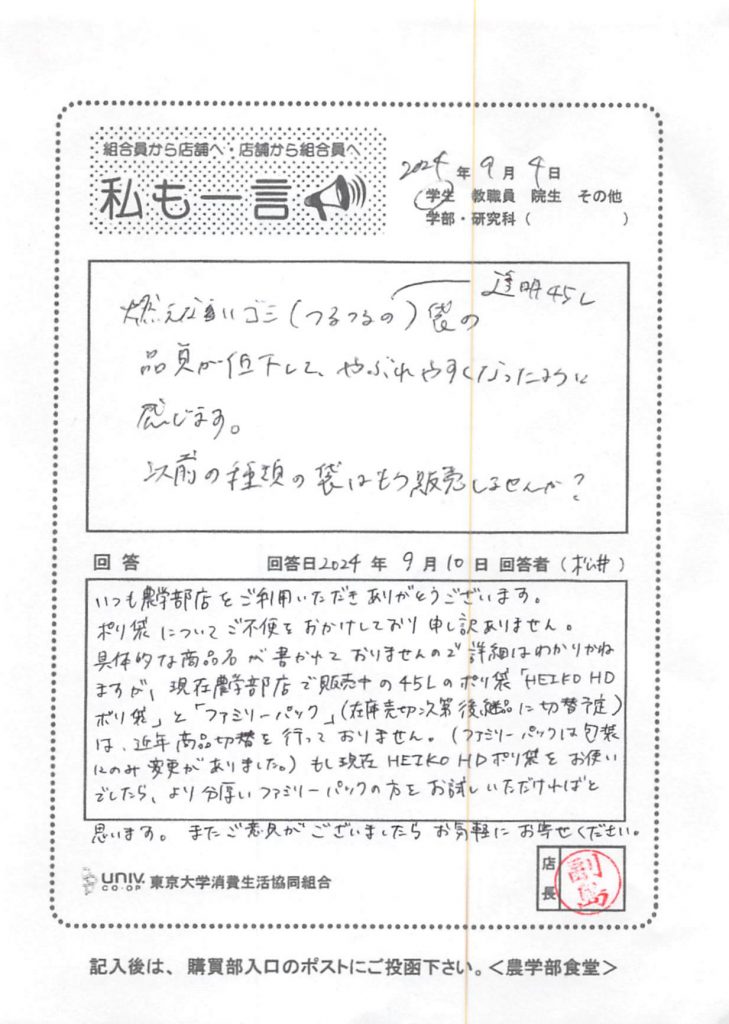 組合員から店舗へ・店舗から組合員へ
私も一言
2024年9月4日
学生 教職員 院生 その他
学部・研究科（　　　　　）
透明45L
燃えないゴミ(つるつるの)袋の
品質が低下して、やぶれやすくなったように
感じます。
以前の種類の袋はもう販売しませんか?
回答 回答日2024年9月10日 回答者（松井）
いつも農学部店をご利用いただきありがとうございます。
ポリ袋についてご不便をおかけしており申し訳ありません。
具体的な商品名が書かれておりませんので詳細はわかりかね
ますが、現在農学部店で販売中の45Lのポリ袋「HEIKO HD
ポリ袋」と「ファミリーパック」(在庫売切次第後継品に切替予定)
は、近年商品切替を行っておりません。(ファミリーパックは包装
にのみ変更がありました。)もし現在HEIKO HDポリ袋をお使い
でしたら、より分厚いファミリーパックの方をお試しいただければと
思います。またご意見がございましたらお気軽にお寄せください。
UNIV. CO-OP 東京大学消費生活協同組合
店長 副島
記入後は、購買部入口のポストにご投函下さい。＜農学部食堂＞